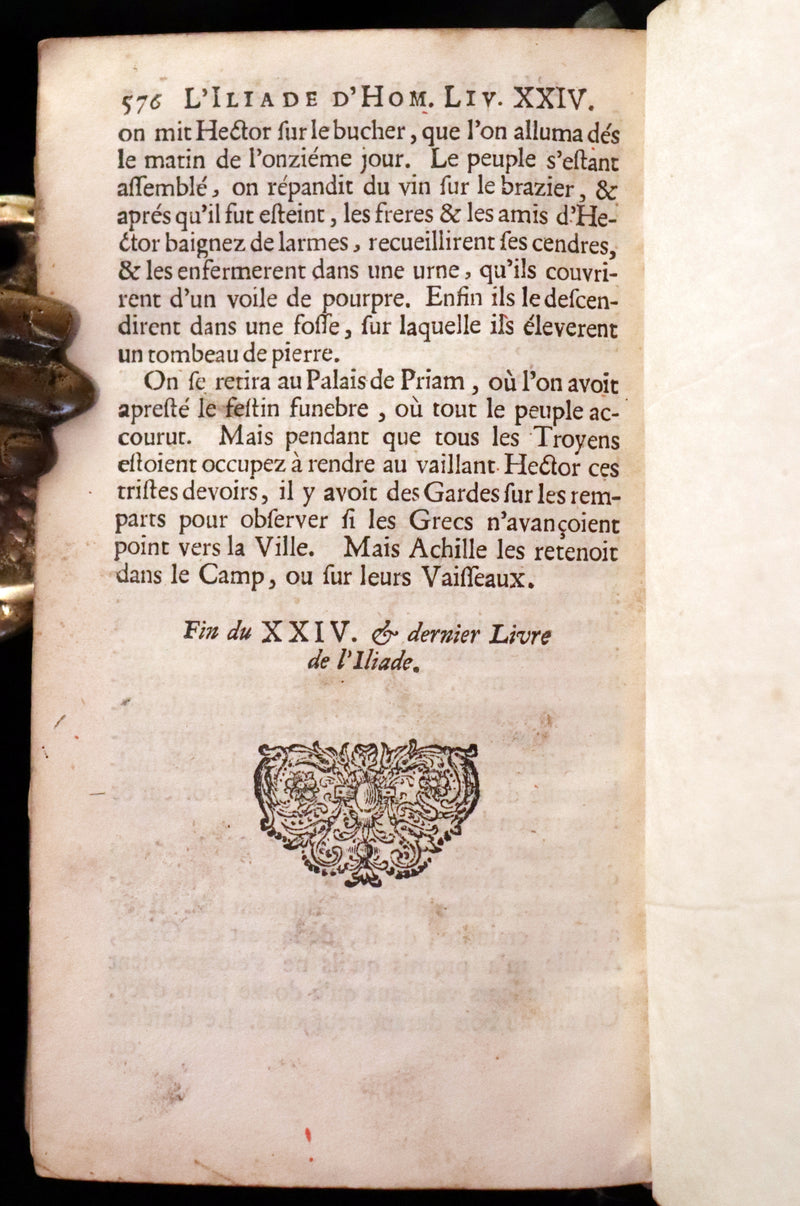 576 L'ILIADE D'HOM. LIV. XXIV.
on mit Hector ſur le bucher, que l'on alluma dés
le matin de l'onziéme jour. Le peuple s'eſtant
aſſemblé, on répandit du vin ſur le brazier, &
aprés qu'il fut eſteint, les freres & les amis d'He-
ctor baignez de larmes, recueillirent ſes cendres,
& les enfermerent dans une urne, qu'ils couvri-
rent d'un voile de pourpre. Enfin ils le deſcen-
dirent dans une foſſe, ſur laquelle ils éleverent
un tombeau de pierre.
On ſe retira au Palais de Priam, où l'on avoit
apreſté le feſtin funebre, où tout le peuple ac-
courut. Mais pendant que tous les Troyens
eſtoient occupez à rendre au vaillant Hector ces
triſtes devoirs, il y avoit des Gardes ſur les rem-
parts pour obſerver ſi les Grecs n'avançoient
point vers la Ville. Mais Achille les retenoit
dans le Camp, ou ſur leurs Vaiſſeaux.
Fin du XXIV. & dernier Livre
de l'Iliade.